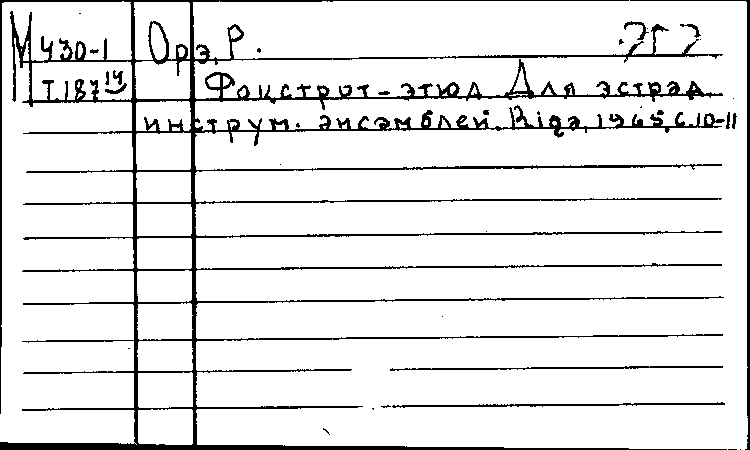 М 430-1 Орэ, Р.
Т.187 14 Фокстрот-этюд Для эстрад.
инструм. ансамблей. Riga, 1965, с.10-11